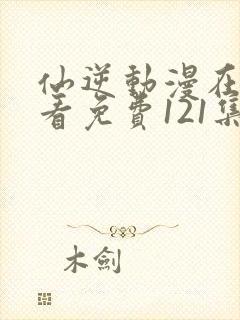 仙逆動漫在
看免費121集
木劍